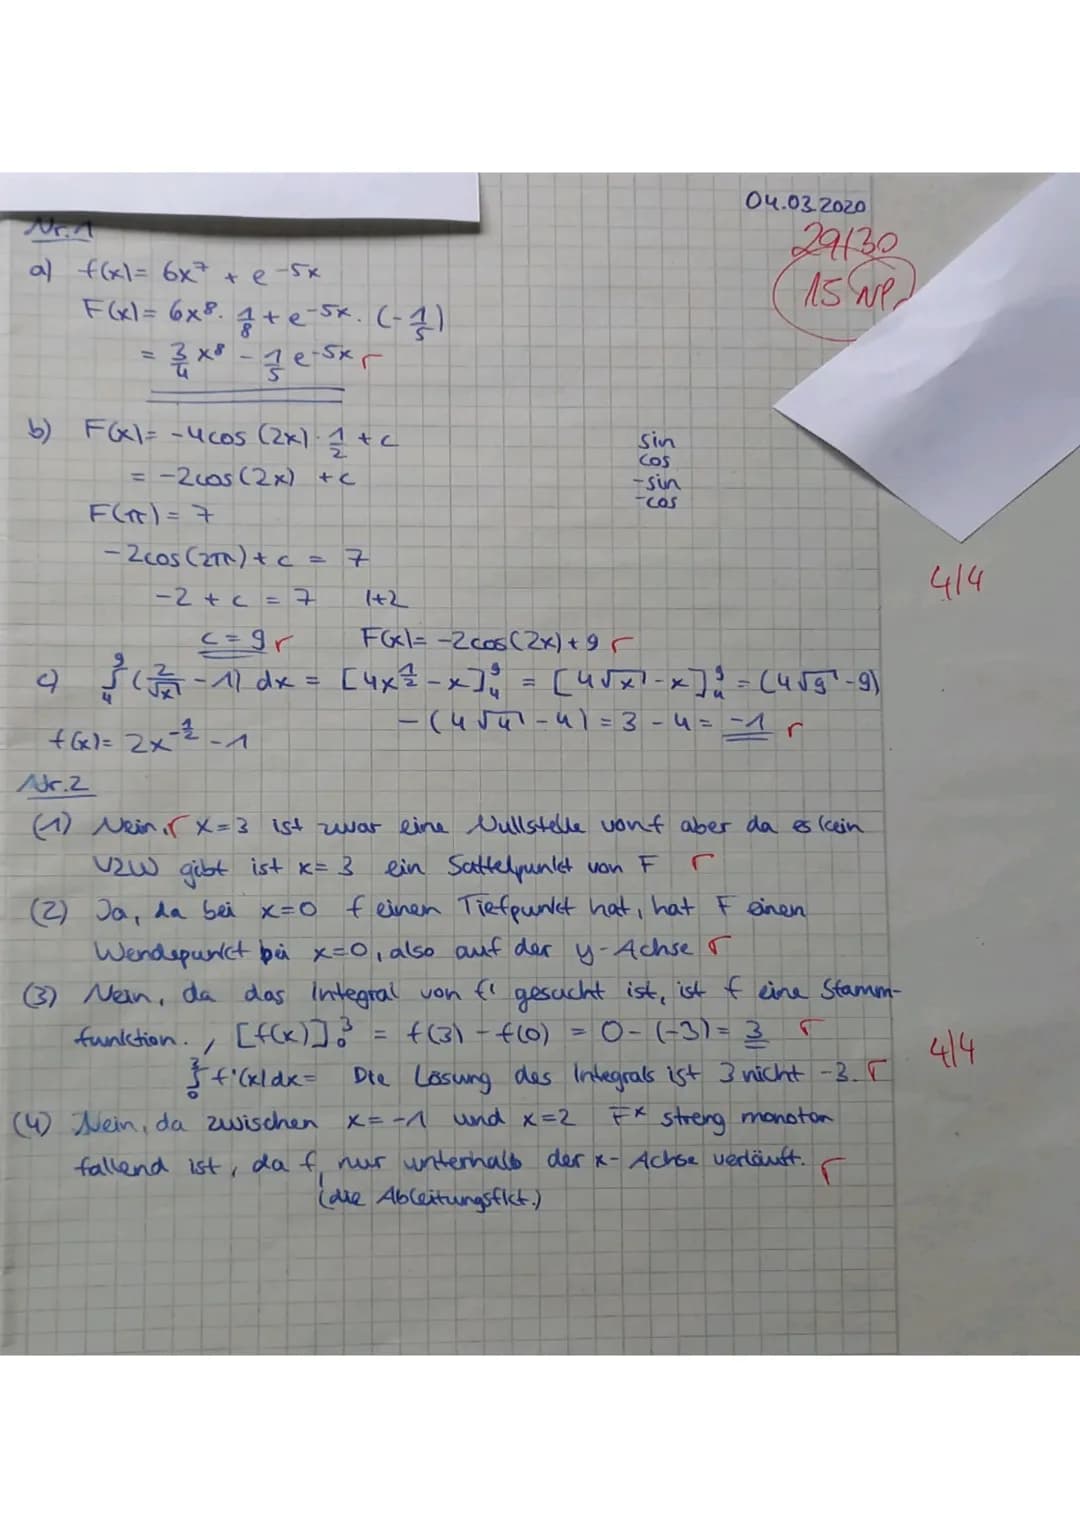 04.03.2020
29/30
15 NP.
Nr.1
a) f(x)= 6x⁷ + e^-5x
F(x)= 6x⁸ · 1/8 + e^-5x · (-1/5)
= 3/4 x⁸ - 1/5 e^-5x r
b) F(x)= -4cos (2x) · 1/2 + c
= -2cos(2x) + c
sin
cos
-sin
-cos
F(π) = 7
-2cos(2π) + c = 7
-2 + c = 7 |+2
4/4
c = 9 r F(x)= -2cos(2x)+9 r
c) ∫₄⁹ (2/√x - 1) dx = [4x^1/2 - x]₄⁹ = [4√x - x]₄⁹ = (4√9 - 9)
- (4√4 - 4) = 3 - 4 = -1 r
f(x)= 2x^-1/2 - 1
Nr.2
(1) Nein, r x=3 ist zwar eine Nullstelle von f aber da es kein
VZW gibt ist x=3 ein Sattelpunkt von F r
(2) Ja, da bei x=0 f einen Tiefpunkt hat, hat F einen
Wendepunkt bei x=0, also auf der y-Achse r
(3) Nein, da das Integral von f' gesucht ist, ist f eine Stamm-
funktion. , [f(x)]₀³ = f(3) - f(0) = 0-(-3) = 3 r
4/4
∫₀³ f'(x)dx= Die Lösung des Integrals ist 3 nicht -3. r
(4) Nein, da zwischen x=-1 und x=2 F streng monoton
fallend ist, da f nur unterhalb der x-Achse verläuft. r
(die Ableitungsfkt.)